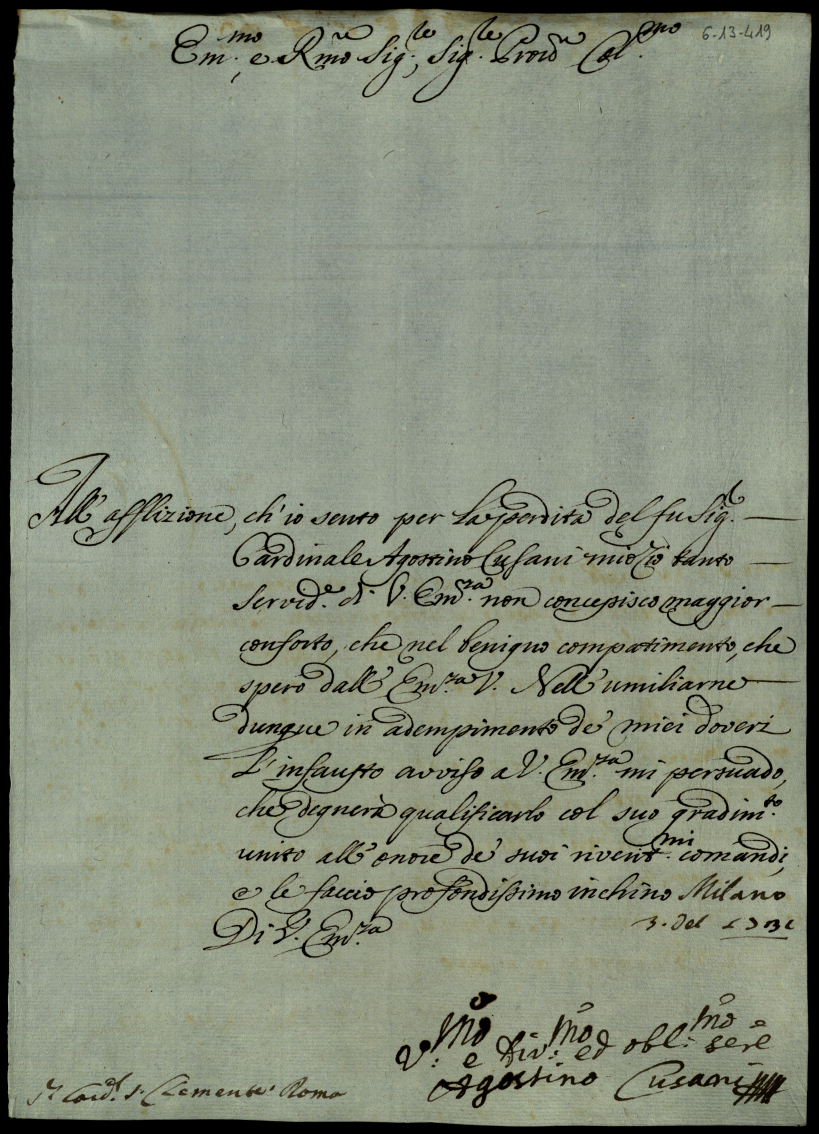 Em.mo, e Rmo Sig.re, Sig.re Prone Col.mo
6-13-419
All' afflizione, ch' io sento per la perdita del fu Sig.r
Cardinale Agostino Cusani mio Zio tanto
Servid.e di V. Em.za non concepisco maggior
conforto, che nel benigno compatimento, che
spero dall' Em.za V. Nell' umiliarne
dunque in adempimento de' miei doveri
l' infausto avviso a V. Em.za mi persuado,
che degnerà qualificarlo col suo gradim.to
unito all' onore de' suoi riverit.mi comandi,
e le faccio profondissimo inchino Milano
3. del
Di V. Em.za
V.mo e Div.mo ed obl.mo Sere
Agostino Cusani
Card.l S. Clemente Roma